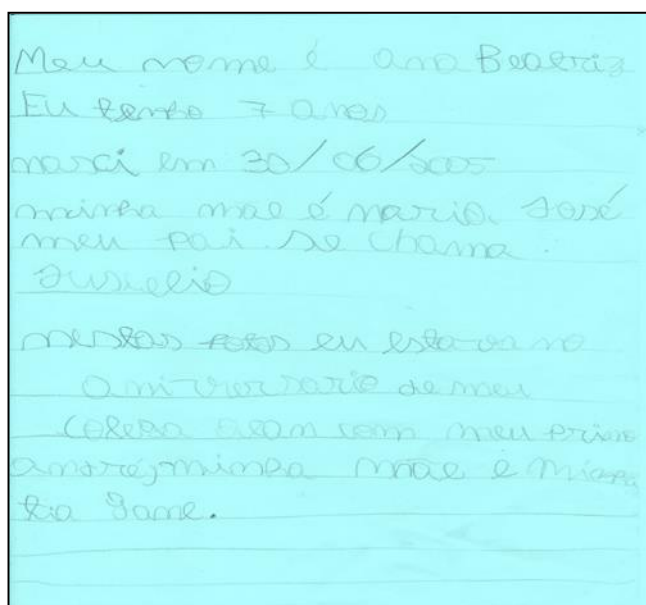 Meu nome é ana Beatriz
Eu tenho 7 anos
nasci em 30/06/2005
minha mãe é maria José
meu pai se chama.
nestas fotos eu estava no
aniversario de meu
colega com meu primo
andré, minha mãe e minha
tia Jane.